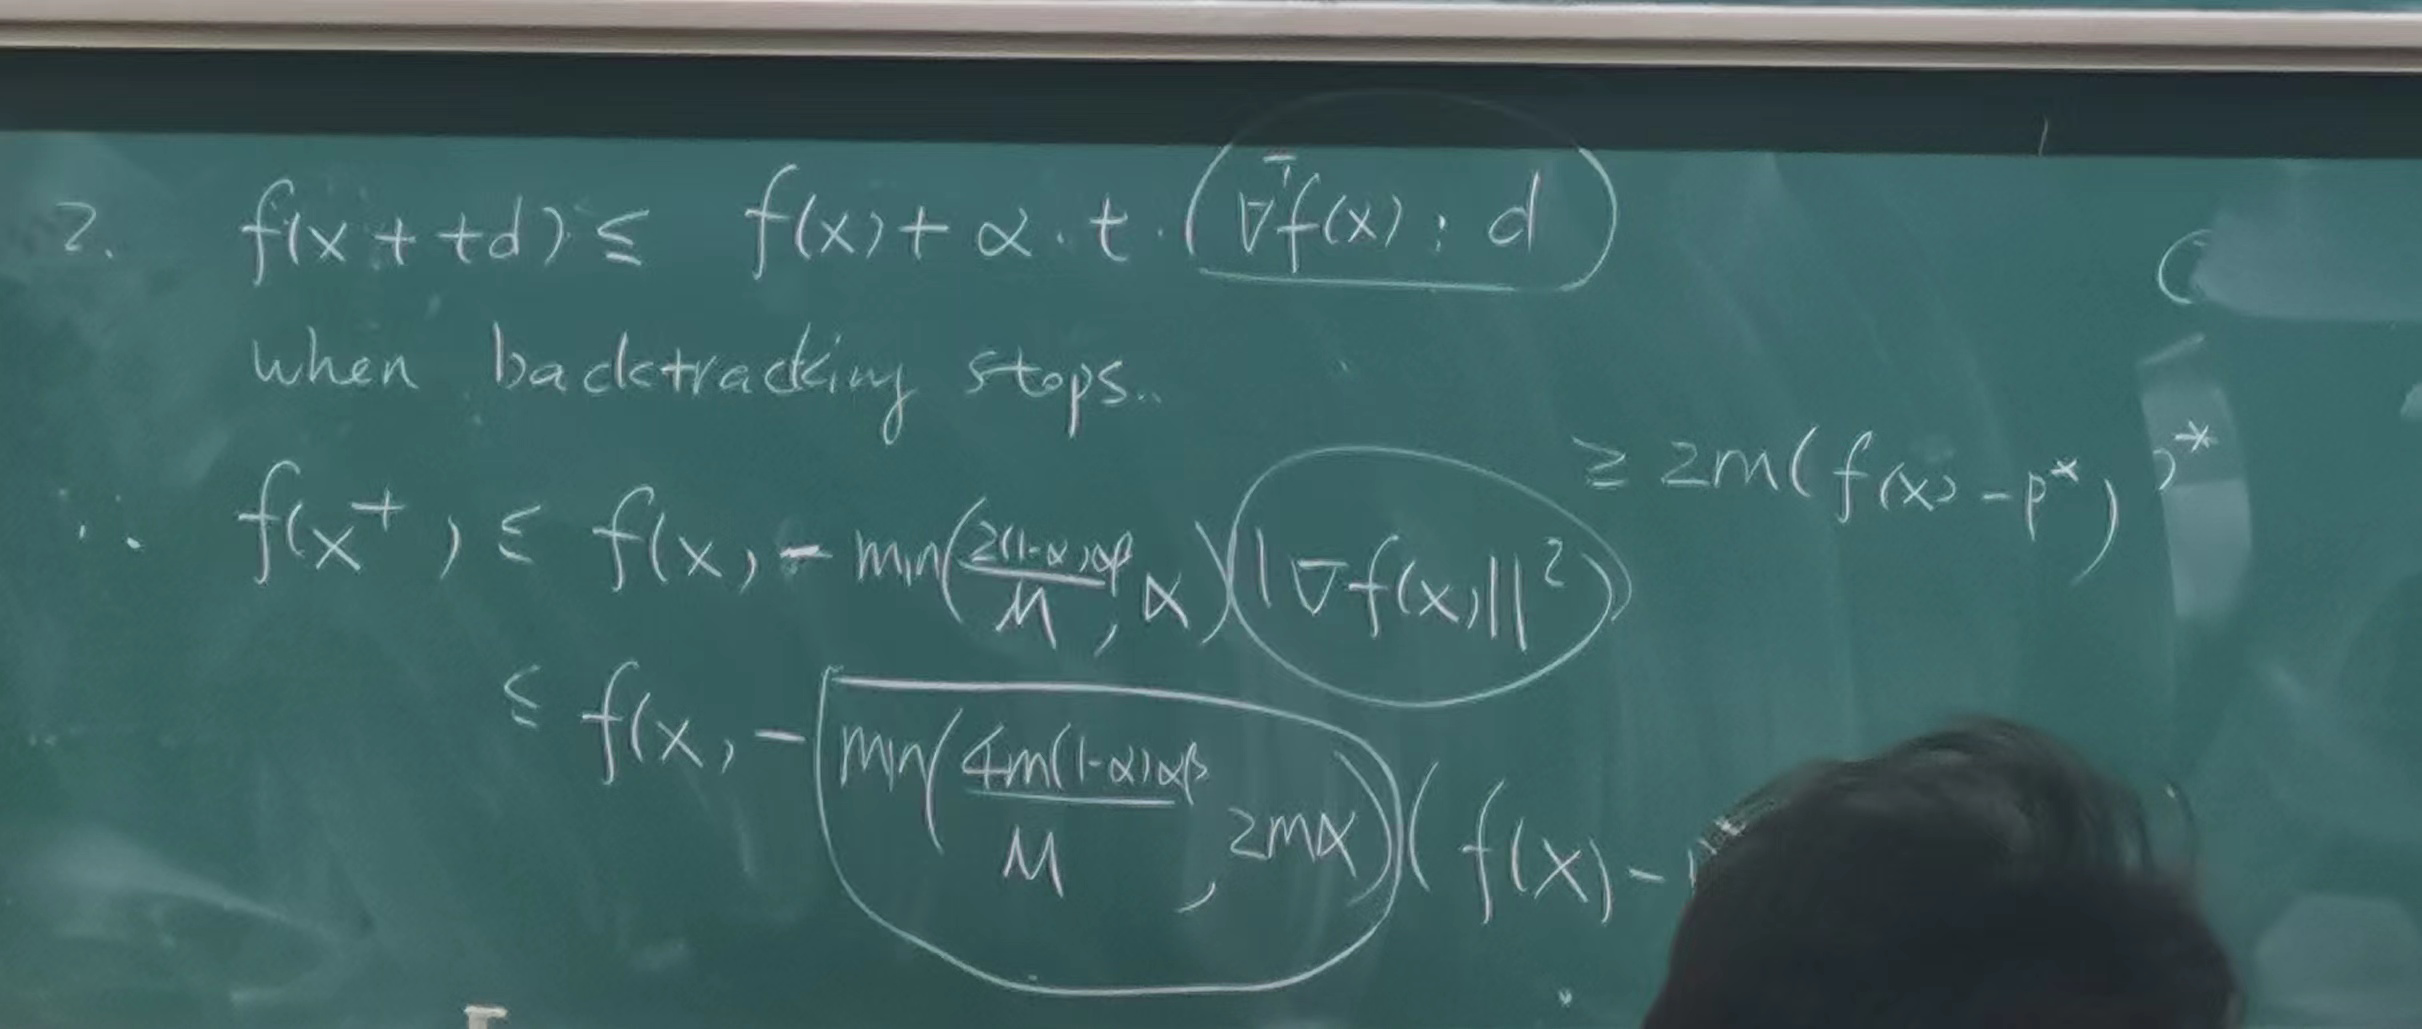 2. f(x + td) ≤ f(x) + α · t · (∇ᵀf(x) · d)
when backtracking stops..
≥ 2m(f(x) - p*)
∴ f(x⁺) ≤ f(x) - min(2(1-α)αβ/M, α)||∇f(x)||²
≤ f(x) - min(4m(1-α)αβ/M, 2mα)(f(x) -